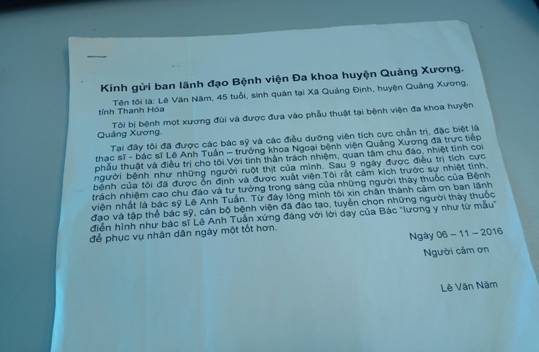 Kính gửi ban lãnh đạo Bệnh viện Đa khoa huyện Quảng Xương.
Tên tôi là: Lê Văn Năm, 45 tuổi, sinh quán tại Xã Quảng Định, huyện Quảng Xương,
tỉnh Thanh Hóa
Tôi bị bệnh mọt xương đùi và được đưa vào phẫu thuật tại bệnh viện đa khoa huyện
Quảng Xương.
Tại đây tôi đã được các bác sỹ và các điều dưỡng viên tích cực chẩn trị, đặc biệt là
thạc sĩ - bác sĩ Lê Anh Tuấn – trưởng khoa Ngoại bệnh viện Quảng Xương đã trực tiếp
phẫu thuật và điều trị cho tôi.Với tinh thần trách nhiệm, quan tâm chu đáo, nhiệt tình coi
người bệnh như những người ruột thịt của mình. Sau 9 ngày được điều trị tích cực,
bệnh của tôi đã được ổn định và được xuất viện.Tôi rất cảm kích trước sự nhiệt tình,
trách nhiệm cao chu đáo và tư tưởng trong sáng của những người thầy thuốc của Bệnh
viện nhất là bác sỹ Lê Anh Tuấn. Từ đáy lòng mình tôi xin chân thành cảm ơn ban lãnh
đạo và tập thể bác sỹ, cán bộ bệnh viện đã đào tạo, tuyển chọn những người thầy thuốc
điển hình như bác sĩ Lê Anh Tuấn xứng đáng với lời dạy của Bác "lương y như từ mẫu"
để phục vụ nhân dân ngày một tốt hơn.
Ngày 06 – 11 – 2016
Người cảm ơn
Lê Văn Năm